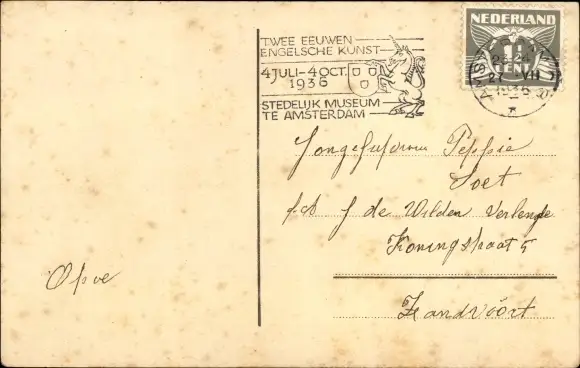 TWEE EEUWEN
ENGELSCHE KUNST
4 JULI-4 OCT.
1936
STEDELIJK MUSEUM
TE AMSTERDAM
NEDERLAND
CENT
27 VII
1936
Jongejuffrouw Peppie
Soet
p/a J de Wilden Verlengde
Koningstraat 5
Zandvoort